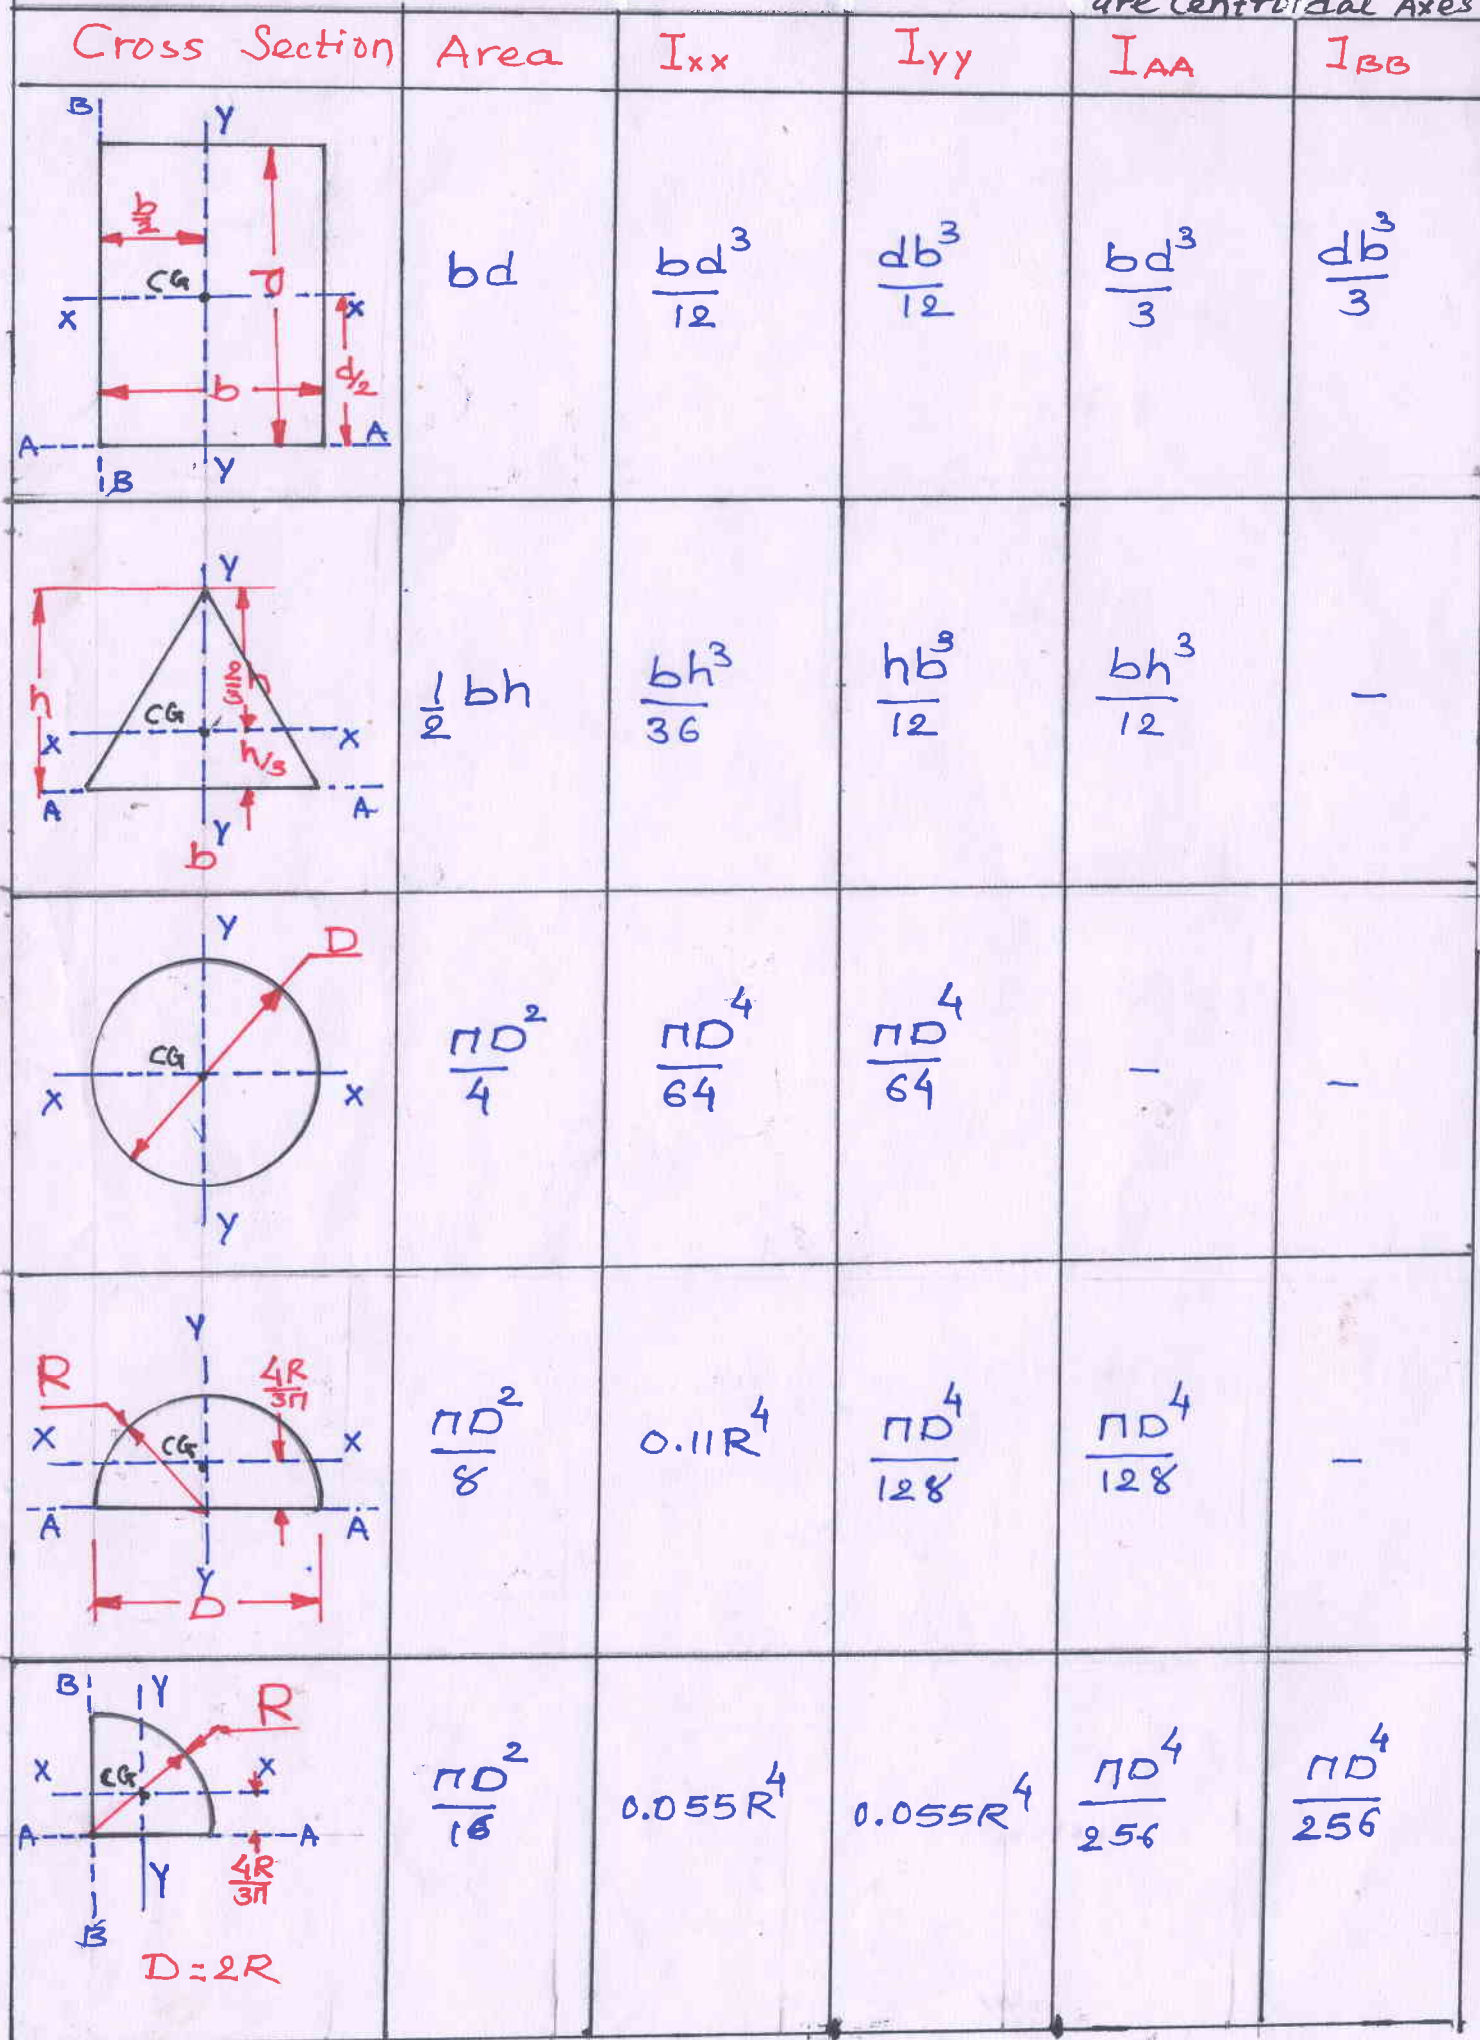 are Centroidal Axes
Cross Section Area Ixx Iyy IAA IBB
B Y
b/2
d
CG
X X
b
d/2
A A
B Y
bd
bd³/12
db³/12
bd³/3
db³/3
Y
h
2/3 h
CG
X X
h/3
A A
Y
b
1/2 bh
bh³/36
hb³/12
bh³/12
-
Y
D
CG
X X
Y
πD²/4
πD⁴/64
πD⁴/64
-
-
Y
R
4R/3π
X X
CG
A A
Y
D
πD²/8
0.11R⁴
πD⁴/128
πD⁴/128
-
B Y
R
X X
CG
A A
4R/3π
Y
B
D=2R
πD²/16
0.055R⁴
0.055R⁴
πD⁴/256
πD⁴/256